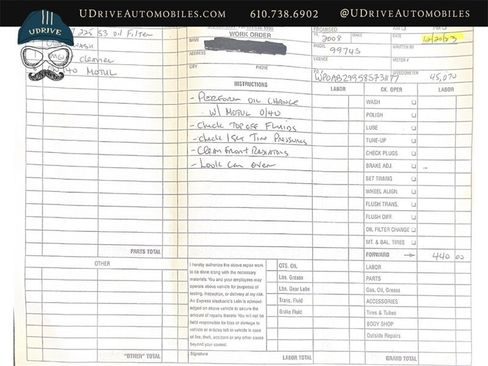 UDRIVEAUTOMOBILES.COM 610.738.6902 @UDRIVEAUTOMOBILES
UDRIVE
53 Oil Filter
Cleaner
40 MOTUL
PARTS TOTAL
OTHER
"OTHER" TOTAL
WORK ORDER
NAME
ADDRESS
CITY PHONE
INSTRUCTIONS
- PERFORM OIL CHANGE
W/ MOTUL 0/40
- Check TOP OFF FLUIDS
- Check / Set Tire Pressures
- Clean Front Radiators
- Look Car Over
I hereby authorize the above repair work
to be done along with the necessary
materials. You and your employees may
operate above vehicle for purposes of
testing, inspection, or delivery at my risk.
An Express Mechanic's Lien is acknowl-
edged on above vehicle to secure the
amount of repairs thereto. You will not be
held responsible for loss or damage to
vehicle or articles left in vehicle in case
of fire, theft, accident or any other cause
beyond your control.
Signature
QTS. OIL
Lbs. Grease
Lbs. Gear Lube
Trans. Fluid
Brake Fluid
LABOR TOTAL
2008
DATE
MODEL 997 4S WRITTEN BY
LICENSE MOTOR #
45,070
LABOR CK. OPER LABOR
WASH
POLISH
LUBE
TUNE-UP
CHECK PLUGS
BRAKE ADJ.
SET TIMING
WHEEL ALIGN.
FLUSH TRANS.
FLUSH DIFF.
OIL FILTER CHANGE
MT. & BAL. TIRES
FORWARD 440 00
LABOR
PARTS
Gas, Oil, Grease
ACCESSORIES
Tires & Tubes
BODY SHOP
Outside Repairs
GRAND TOTAL